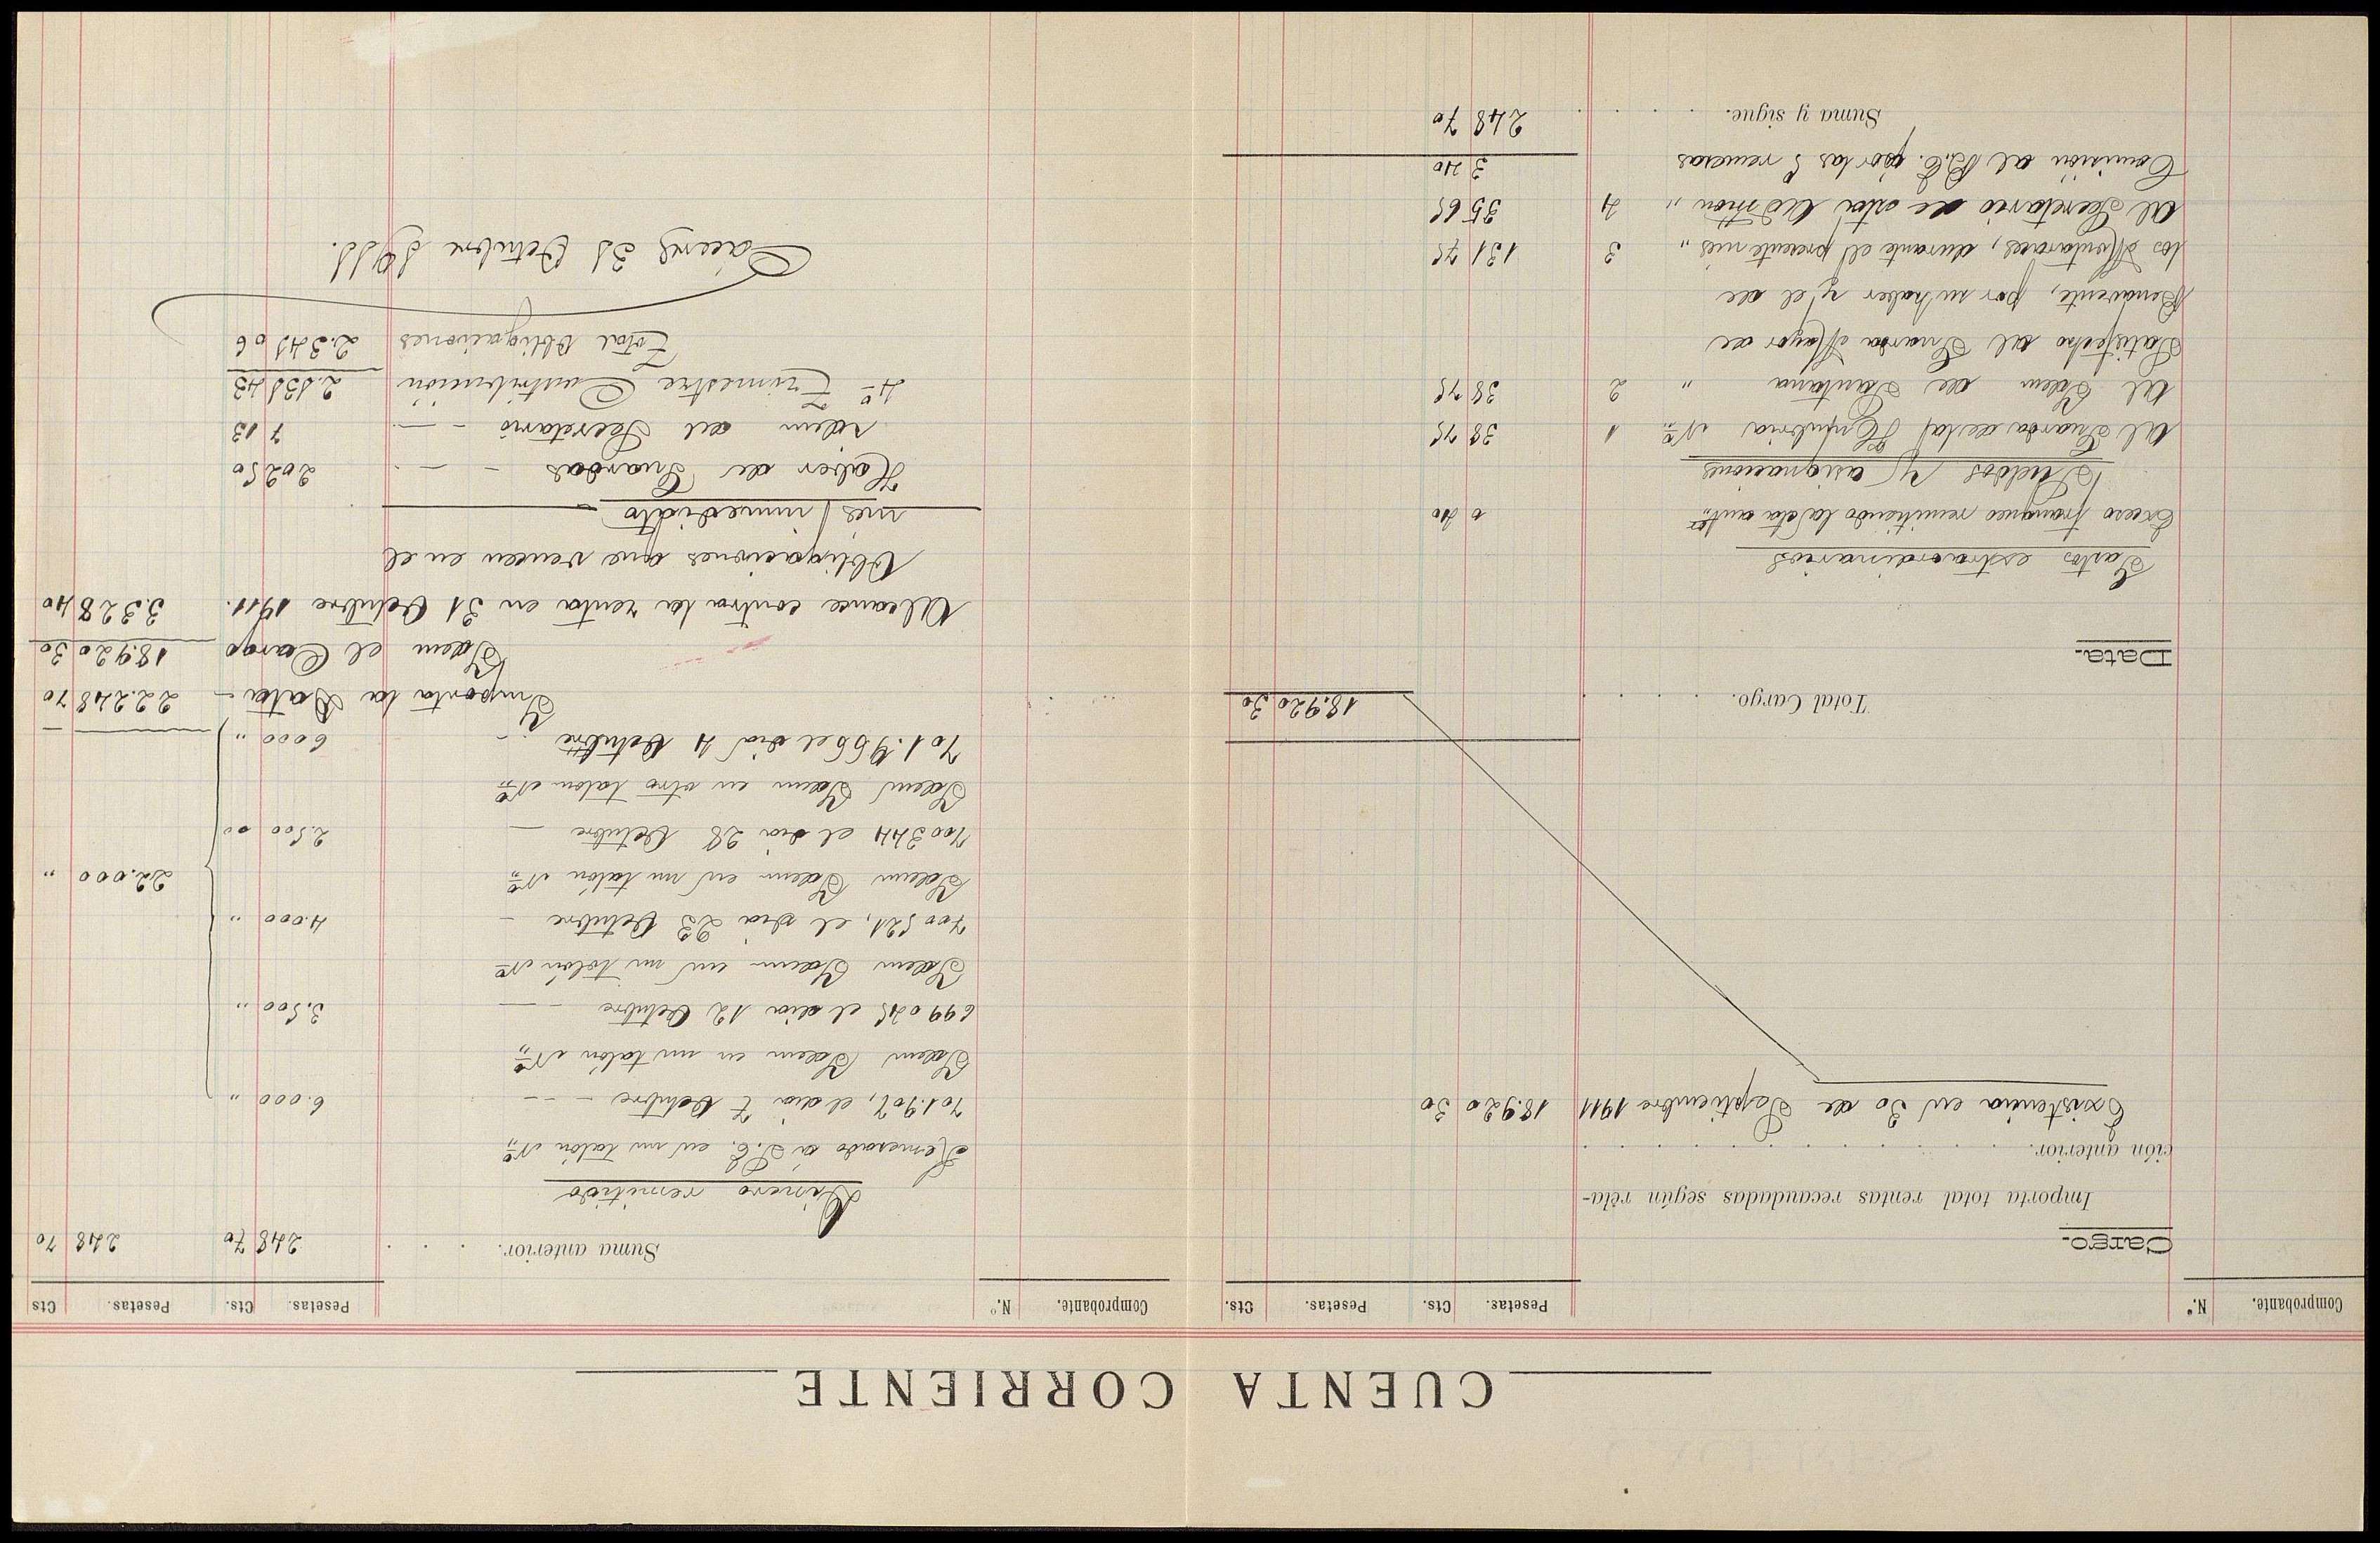 CUENTA CORRIENTE
Comprobante. N.º Pesetas. Cts. Pesetas. Cts.
Cargo.
Importa total rentas recaudadas según rela-
ción anterior.
Existencia en 30 de Septiembre 1911 18.920 30
Total Cargo. 18.920 30
Data.
Gastos estraordinarios
Exceso franqueo remitiendo la cta antr. 0 40
Sueldos y asignaciones
Al Guarda de la Enjubria Nº 1 38 75
Al Idem de Santana " 2 38 75
Satisfecho al Guarda Mayor de
Benavente, por su haber y el de
los Montaraces, durante el presente mes " 3 131 75
Al Secretario de esta Admon " 4 35 65
Comisión al B.E. por las 5 remesas 3 40
Suma y sigue. 248 70
Comprobante. N.º Pesetas. Cts. Pesetas. Cts
Suma anterior. 248 70 248 70
Dinero remitido
Remesado á S.E. en un talón Nº
701.907, el dia 7 Octubre 6.000 "
Idem Idem en un talón Nº
699045 el dia 12 Octubre 3.500 "
Idem Idem en un talón Nº
700521, el dia 23 Octubre 4.000 "
Idem Idem en un talón Nº 22.000 "
700344 el dia 28 Octubre 2.500 00
Idem Idem en otro talon Nº
701.956 el dia 4 Octubre 6000 "
Importa la Data 22.248 70
Idem el Cargo 18.920 30
Alcance contra la renta en 31 Octubre 1911. 3.328 40
Obligaciones que vencen en el
mes inmediato
Haber de Guardas 202 50
idem del Secretario 7 13
4º Trimestre Contribución 2.131 43
Total Obligaciones 2.341 06
Cáceres 31 Octubre 1911.